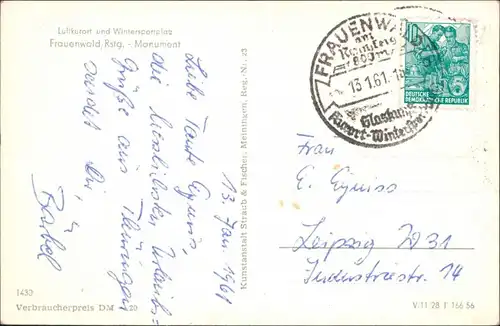 Luftkurort und Wintersportplatz
Frauenwald, Rstg. - Monument
13. Jan. 1961
Liebe Tante
die herzlichsten Urlaubs=
grüße aus Thüringen
sendet Dir,
Bärbel
1430
Verbraucherpreis DM 0,20
Kunstanstalt Straub & Fischer, Meiningen, Reg.-Nr. 23
FRAUENWALD
am
Rennsteig
800m
13.1.61.-18
Kurort-Wintersport
10
DEUTSCHE
DEMOKRATISCHE REPUBLIK
Frau
Leipzig W31
Industriestr. 14
V 11 28 P 166 56